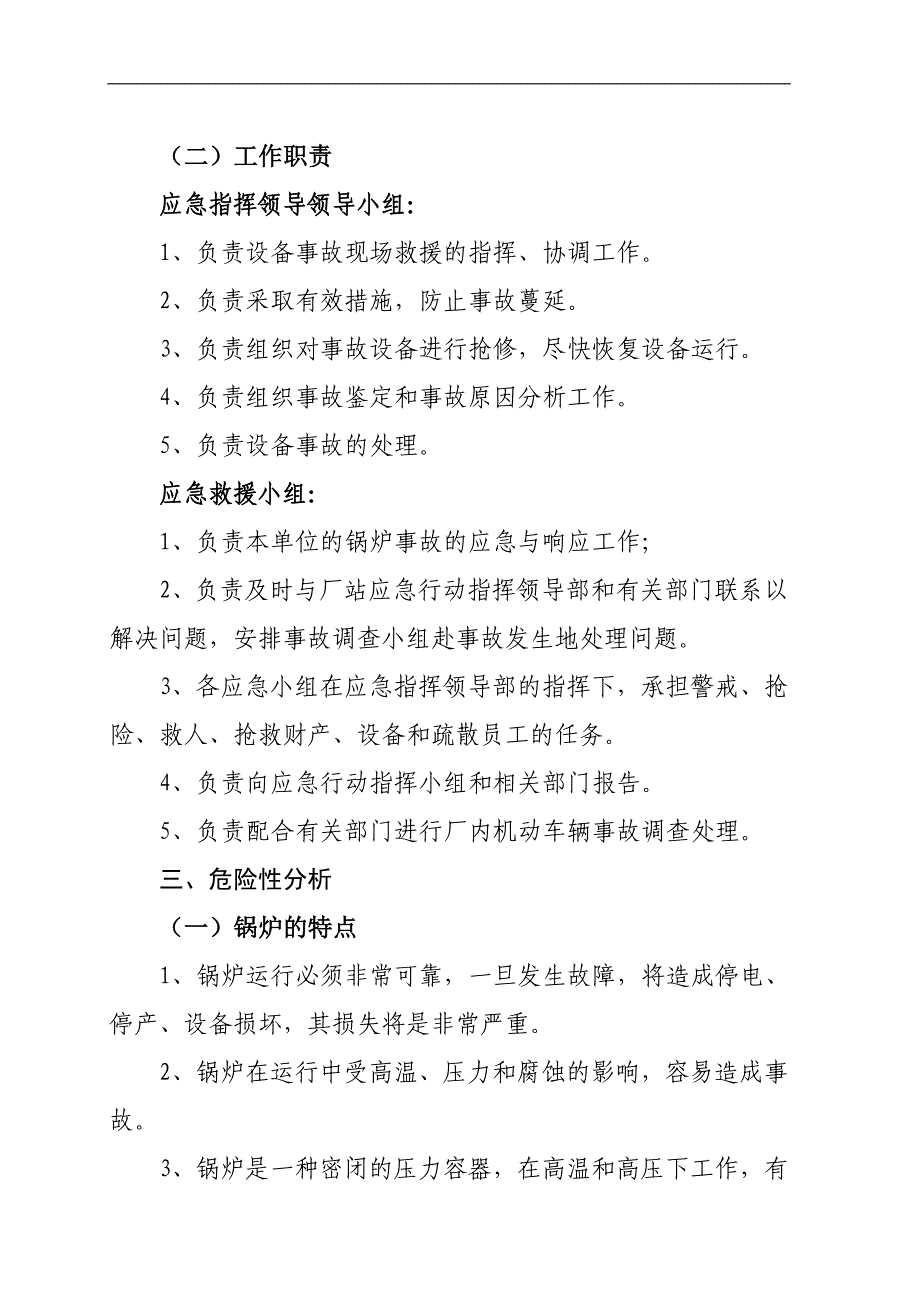 （二）工作职责
应急指挥领导领导小组：
1、负责设备事故现场救援的指挥、协调工作。
2、负责采取有效措施，防止事故蔓延。
3、负责组织对事故设备进行抢修，尽快恢复设备运行。
4、负责组织事故鉴定和事故原因分析工作。
5、负责设备事故的处理。
应急救援小组：
1、负责本单位的锅炉事故的应急与响应工作；
2、负责及时与厂站应急行动指挥领导部和有关部门联系以
解决问题，安排事故调查小组赴事故发生地处理问题。
3、各应急小组在应急指挥领导部的指挥下，承担警戒、抢
险、救人、抢救财产、设备和疏散员工的任务。
4、负责向应急行动指挥小组和相关部门报告。
5、负责配合有关部门进行厂内机动车辆事故调查处理。
三、危险性分析
（一）锅炉的特点
1、锅炉运行必须非常可靠，一旦发生故障，将造成停电、
停产、设备损坏，其损失将是非常严重。
2、锅炉在运行中受高温、压力和腐蚀的影响，容易造成事
故。
3、锅炉是一种密闭的压力容器，在高温和高压下工作，有